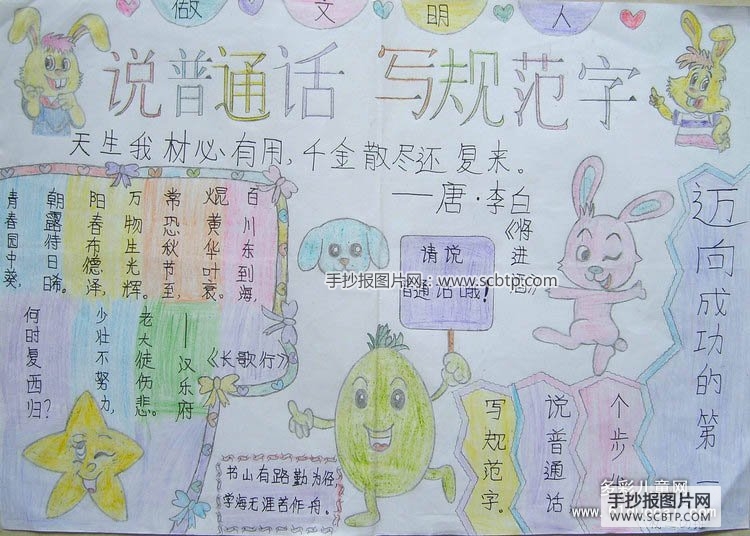 做文明人
说普通话 写规范字
天生我材必有用，千金散尽还复来。
——唐·李白
《将进酒》
青春园中葵，
朝露待日晞。
阳春布德泽，
万物生光辉。
常恐秋节至，
焜黄华叶衰。
百川东到海，
何时复西归？
少壮不努力，
老大徒伤悲。
——汉乐府
《长歌行》
请说
普通话哦！
手抄报图片网：www.scbtp.com
书山有路勤为径
学海无涯苦作舟。
迈向成功的第一
个步
说普通话
写规范字。
多彩儿童网
手抄报图片网
WWW.SCBTP.COM